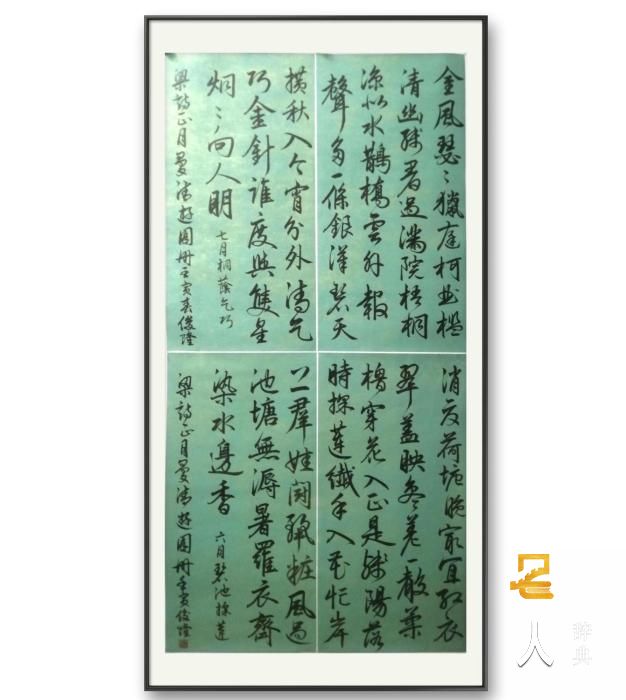 金風瑟〻獵庭柯曲檻
清幽殘暑過滿院梧桐
涼似水鵲橋雲外報
聲多一條銀漢碧天
橫秋入今宵分外清乞
巧金針誰度與隻星
炯〻向人明
七月桐蔭乞巧
梁詩正月曼清遊圖冊壬寅春俊隆
消夏荷塘晚最宜紅衣
翠蓋映參差一聲柔
櫓穿花入正是殘陽落
時採蓮纖手入花忙岸
上羣娃鬧靚粧風過
池塘無溽暑羅衣齊
染水邊香
六月碧池採蓮
梁詩正月曼清遊圖冊壬寅俊隆
人
辞典